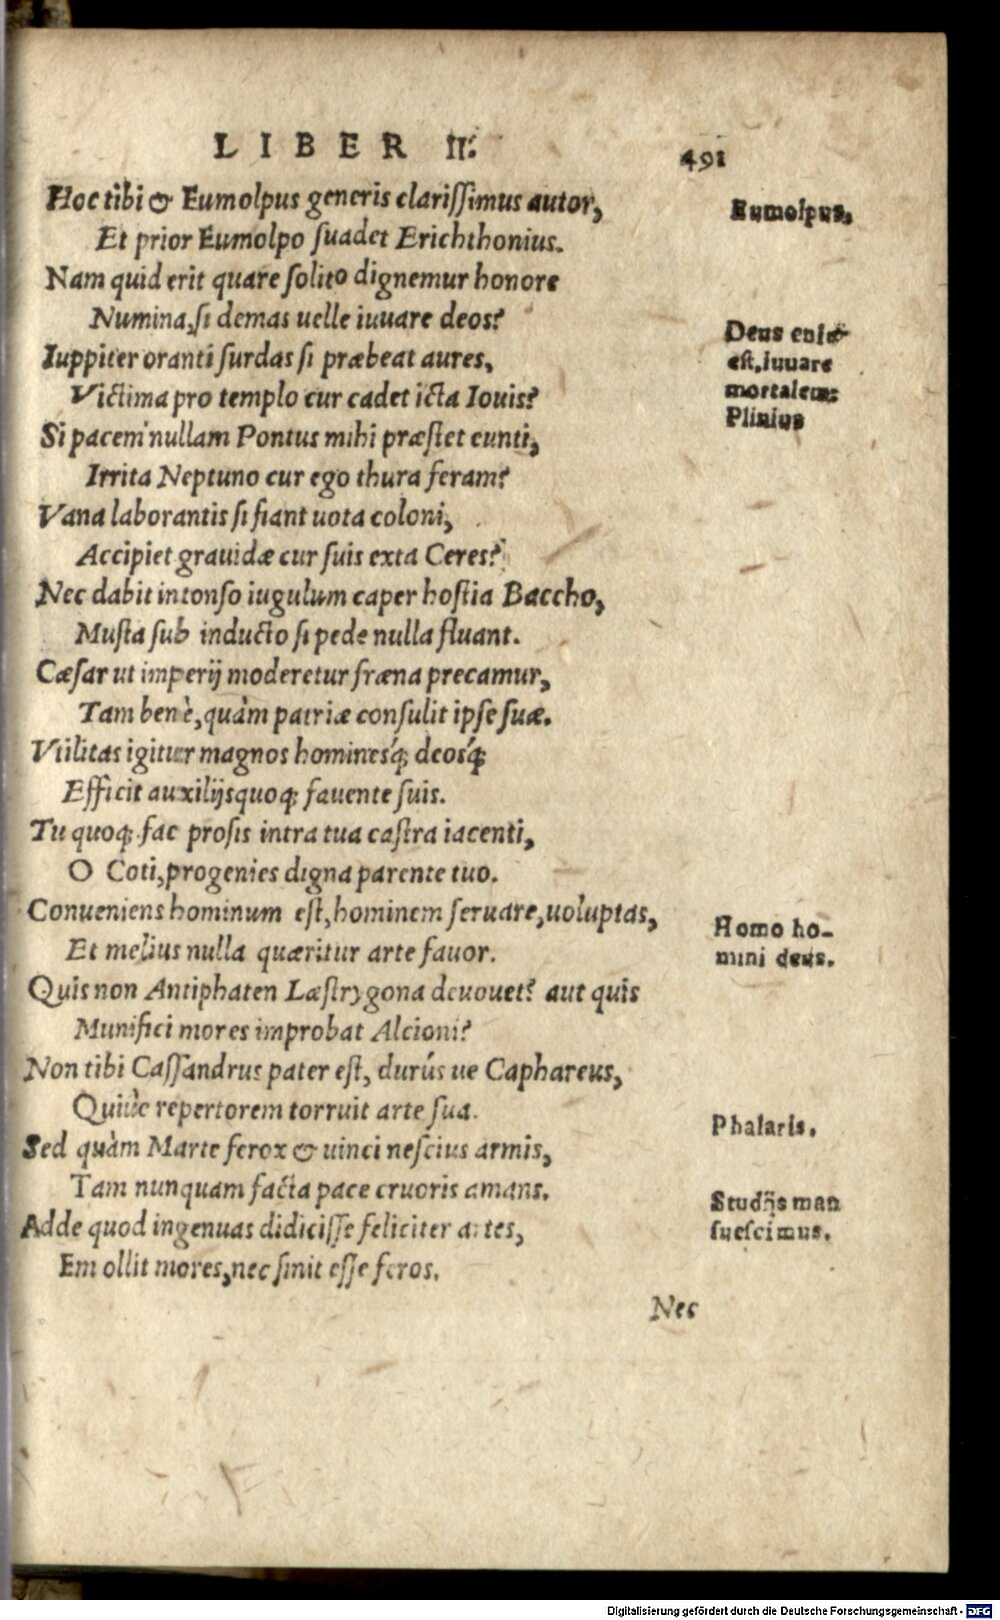 LIBER II.
491
Hoc tibi & Eumolpus generis clarissimus autor,
Et prior Eumolpo suadet Erichthonius.
Nam quid erit quare solito dignemur honore
Numina, si demas uelle iuuare deos?
Iuppiter oranti surdas si præbeat aures,
Victima pro templo cur cadet icta Iouis?
Si pacem nullam Pontus mihi præstet eunti,
Irrita Neptuno cur ego thura feram?
Vana laborantis si fiant uota coloni,
Accipiet grauidæ cur suis exta Ceres?
Nec dabit intonso iugulum caper hostia Baccho,
Musta sub inducto si pede nulla fluant.
Cæsar ut imperij moderetur fræna precamur,
Tam benè, quàm patriæ consulit ipse suæ.
Vtilitas igitur magnos hominesq́; deosq́;
Efficit auxilijsquoq; fauente suis.
Tu quoq; fac prosis intra tua castra iacenti,
O Coti, progenies digna parente tuo.
Conueniens hominum est, hominem seruare, uoluptas,
Et melius nulla quæritur arte fauor.
Quis non Antiphaten Læstrygona deuouet? aut quis
Munifici mores improbat Alcioni?
Non tibi Cassandrus pater est, durús ue Caphareus,
Quiúe repertorem torruit arte sua.
Sed quàm Marte ferox & uinci nescius armis,
Tam nunquam facta pace cruoris amans.
Adde quod ingenuas didicisse feliciter artes,
Em ollit mores, nec sinit esse feros.
Nec
Eumolpus.
Deus
est, iuuare
mortalem:
Plinius
Homo ho-
mini deus.
Phalaris.
Studijs man
suescimus.
Digitalisierung gefördert durch die Deutsche Forschungsgemeinschaft - DFG